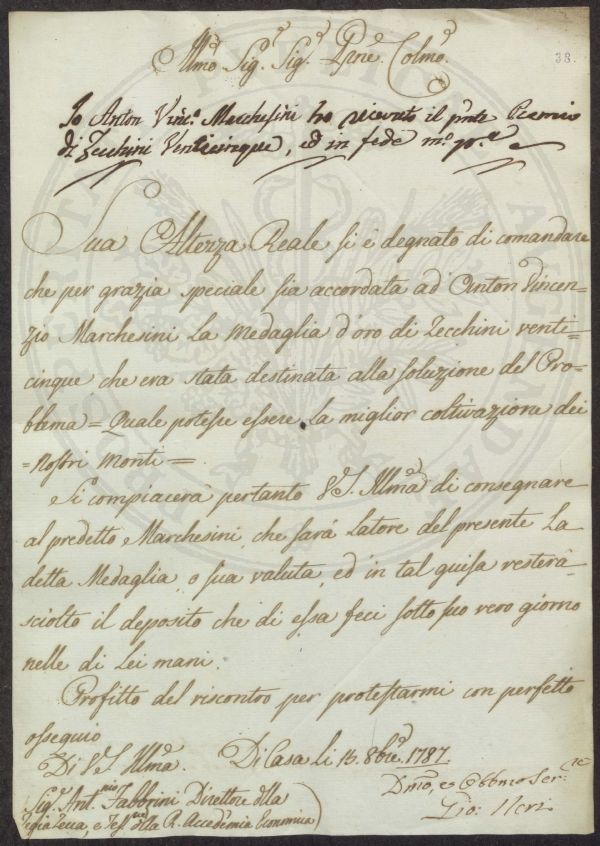 Illmo Sig.r Sig.r Prone Colmo
38.
Io Anton Vinc.o Marchesini ho ricevuto il pnte Premio
di Zecchini Venticinque, ed in fede m.o pp.a
Sua Altezza Reale si è degnato di comandare
che per grazia speciale sia accordata ad Anton Vincen-
zio Marchesini La Medaglia d'oro di Zecchini venti=
cinque che era stata destinata alla soluzione del Pro-
blema = Quale potesse essere la miglior coltivazione dei
= nostri Monti =
Si compiacerà pertanto VS. Illma di consegnare
al predetto Marchesini, che sarà Latore del presente La
detta Medaglia, o sua valuta, ed in tal guisa resterà
sciolto il deposito che di essa feci sotto suo vero giorno
nelle di Lei mani.
Profitto del riscontro per protestarmi con perfetto
ossequio
Di VS. Illma. Di Casa li 15. 8bre. 1787.
Sig.r Ant.nio Fabbrini Direttore dlla
Regia Zecca, e Tes.re dlla R. Accademia Economica
Dmo, ed Obbmo Ser.re
Gio: Neri